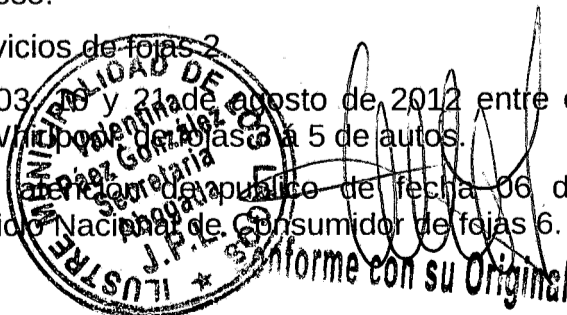 vicios de fojas 2
03, 10 y 21 de agosto de 2012 entre
Whirlpool, de fojas 3 a 5 de autos.
atención de publico de fecha 06 d
Nacional de Consumidor de fojas 6.
ILUSTRE MUNICIPALIDAD DE
Valentina
Páez González
Secretaria
Abogada
J.P.L.
Conforme con su Original